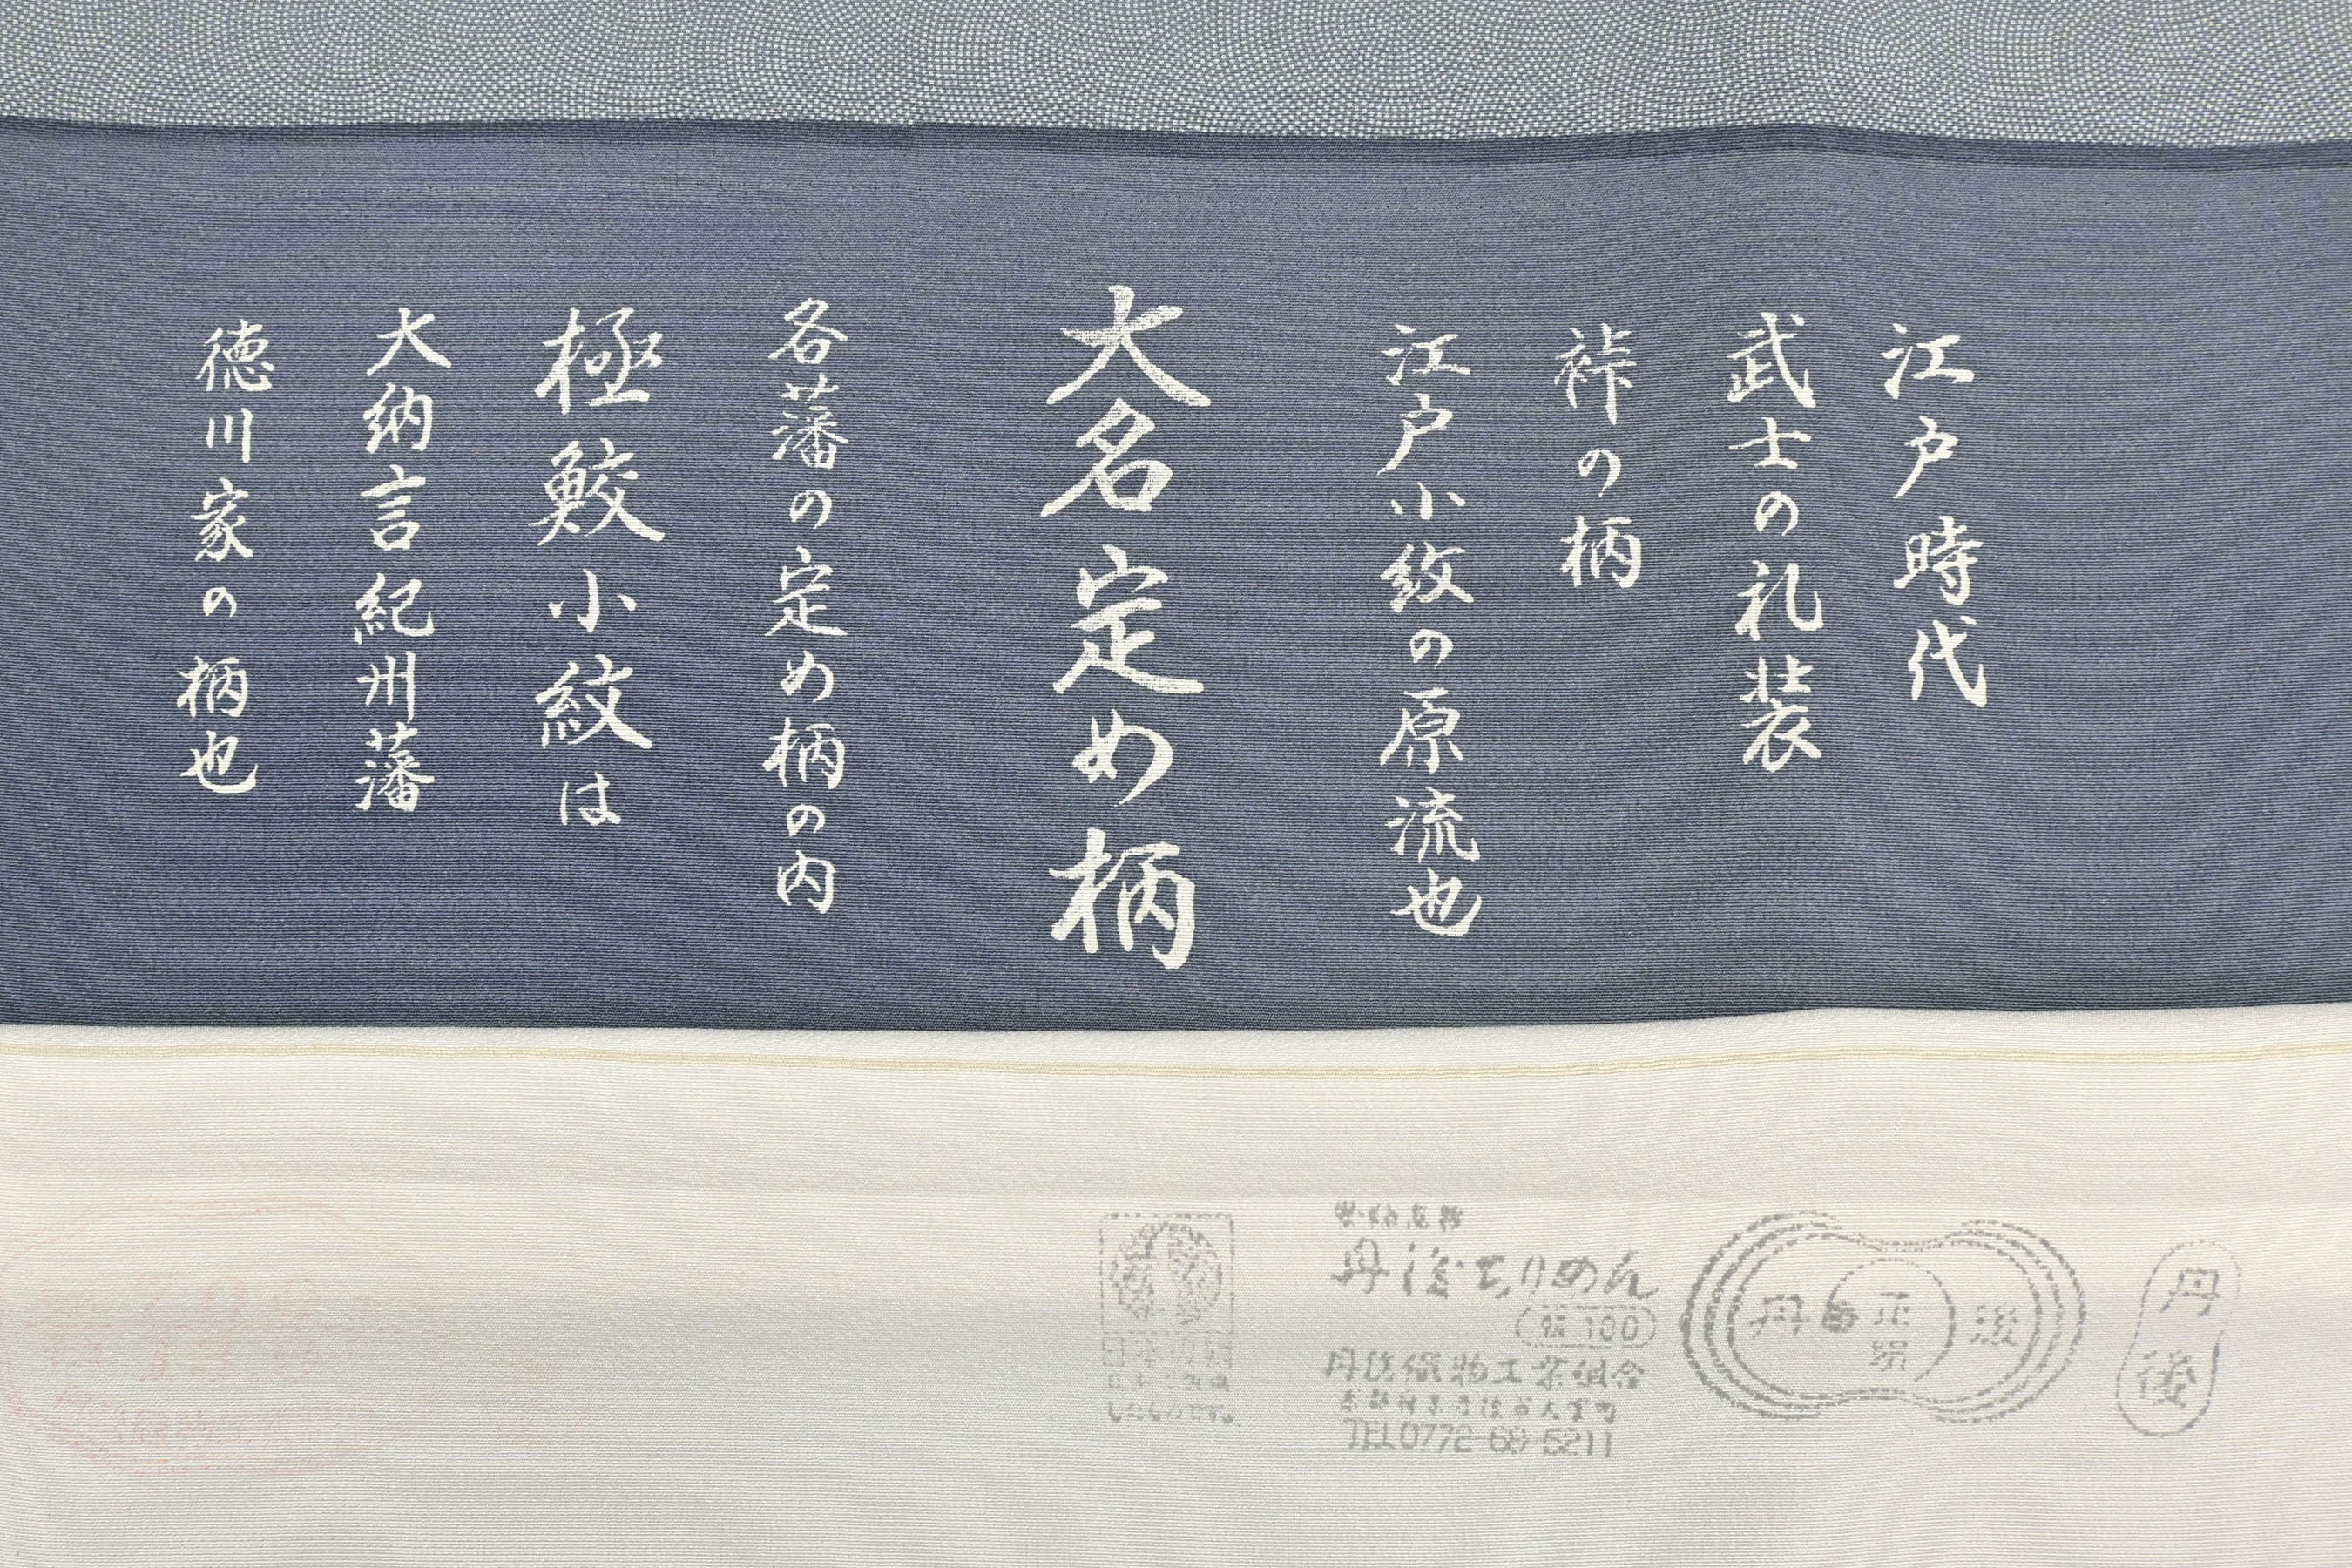 江戸時代
武士の礼装
裃の柄
江戸小紋の原流也
大名定め柄
各藩の定め柄の内
極鮫小紋は
大納言紀州藩
徳川家の柄也
丹後ちりめん
絹 100
丹後織物工業組合
TEL 0772-68-5211
丹後
丹後